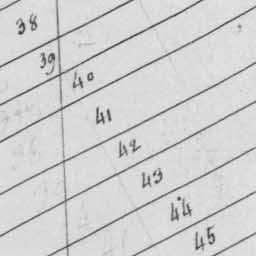 38
39
40
41
42
43
44
45